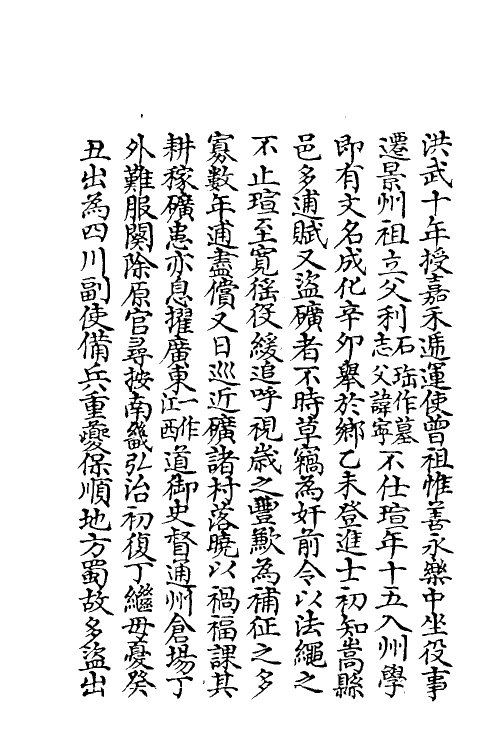 洪武十年授嘉禾逓運使曾祖惟善永樂中坐役事
遷景州祖立父利石珤作墓志父諱寧不仕瑄年十五入州學
即有文名成化辛卯舉於鄉乙未登進士初知嵩縣
邑多逋賦又盜礦者不時草竊為奸前令以法繩之
不止瑄至寛徭役緩追呼視歲之豐歉為補征之多
寡數年逋盡償又日巡近礦諸村落曉以禍福課其
耕稼礦患亦息擢廣東一作江西道御史督通州倉場丁
外難服闋除原官尋按南畿弘治初復丁繼母憂癸
丑出為四川副使備兵重夔保順地方蜀故多盜出